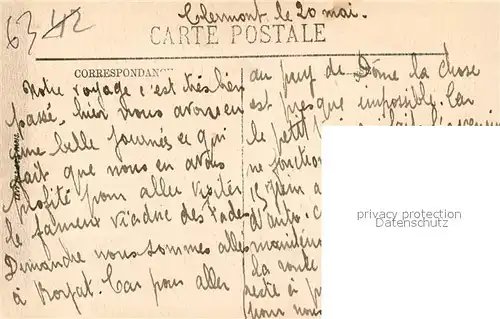 63 42
Clermont, le 20 mai.
CARTE POSTALE
CORRESPONDANCE
Notre voyage s'est très bien
passé, hier nous avons eu
une belle journée ce qui
fait que nous en avons
profité pour aller visiter
le fameux viaduc des Fades
Dimanche nous sommes allés
à Royat. Car pour aller
au puy de Dôme la chose
est presque impossible. Car
le petit
ne fonction
d'auto
maintenant
la route
reste à
pour nous
privacy protection
Datenschutz